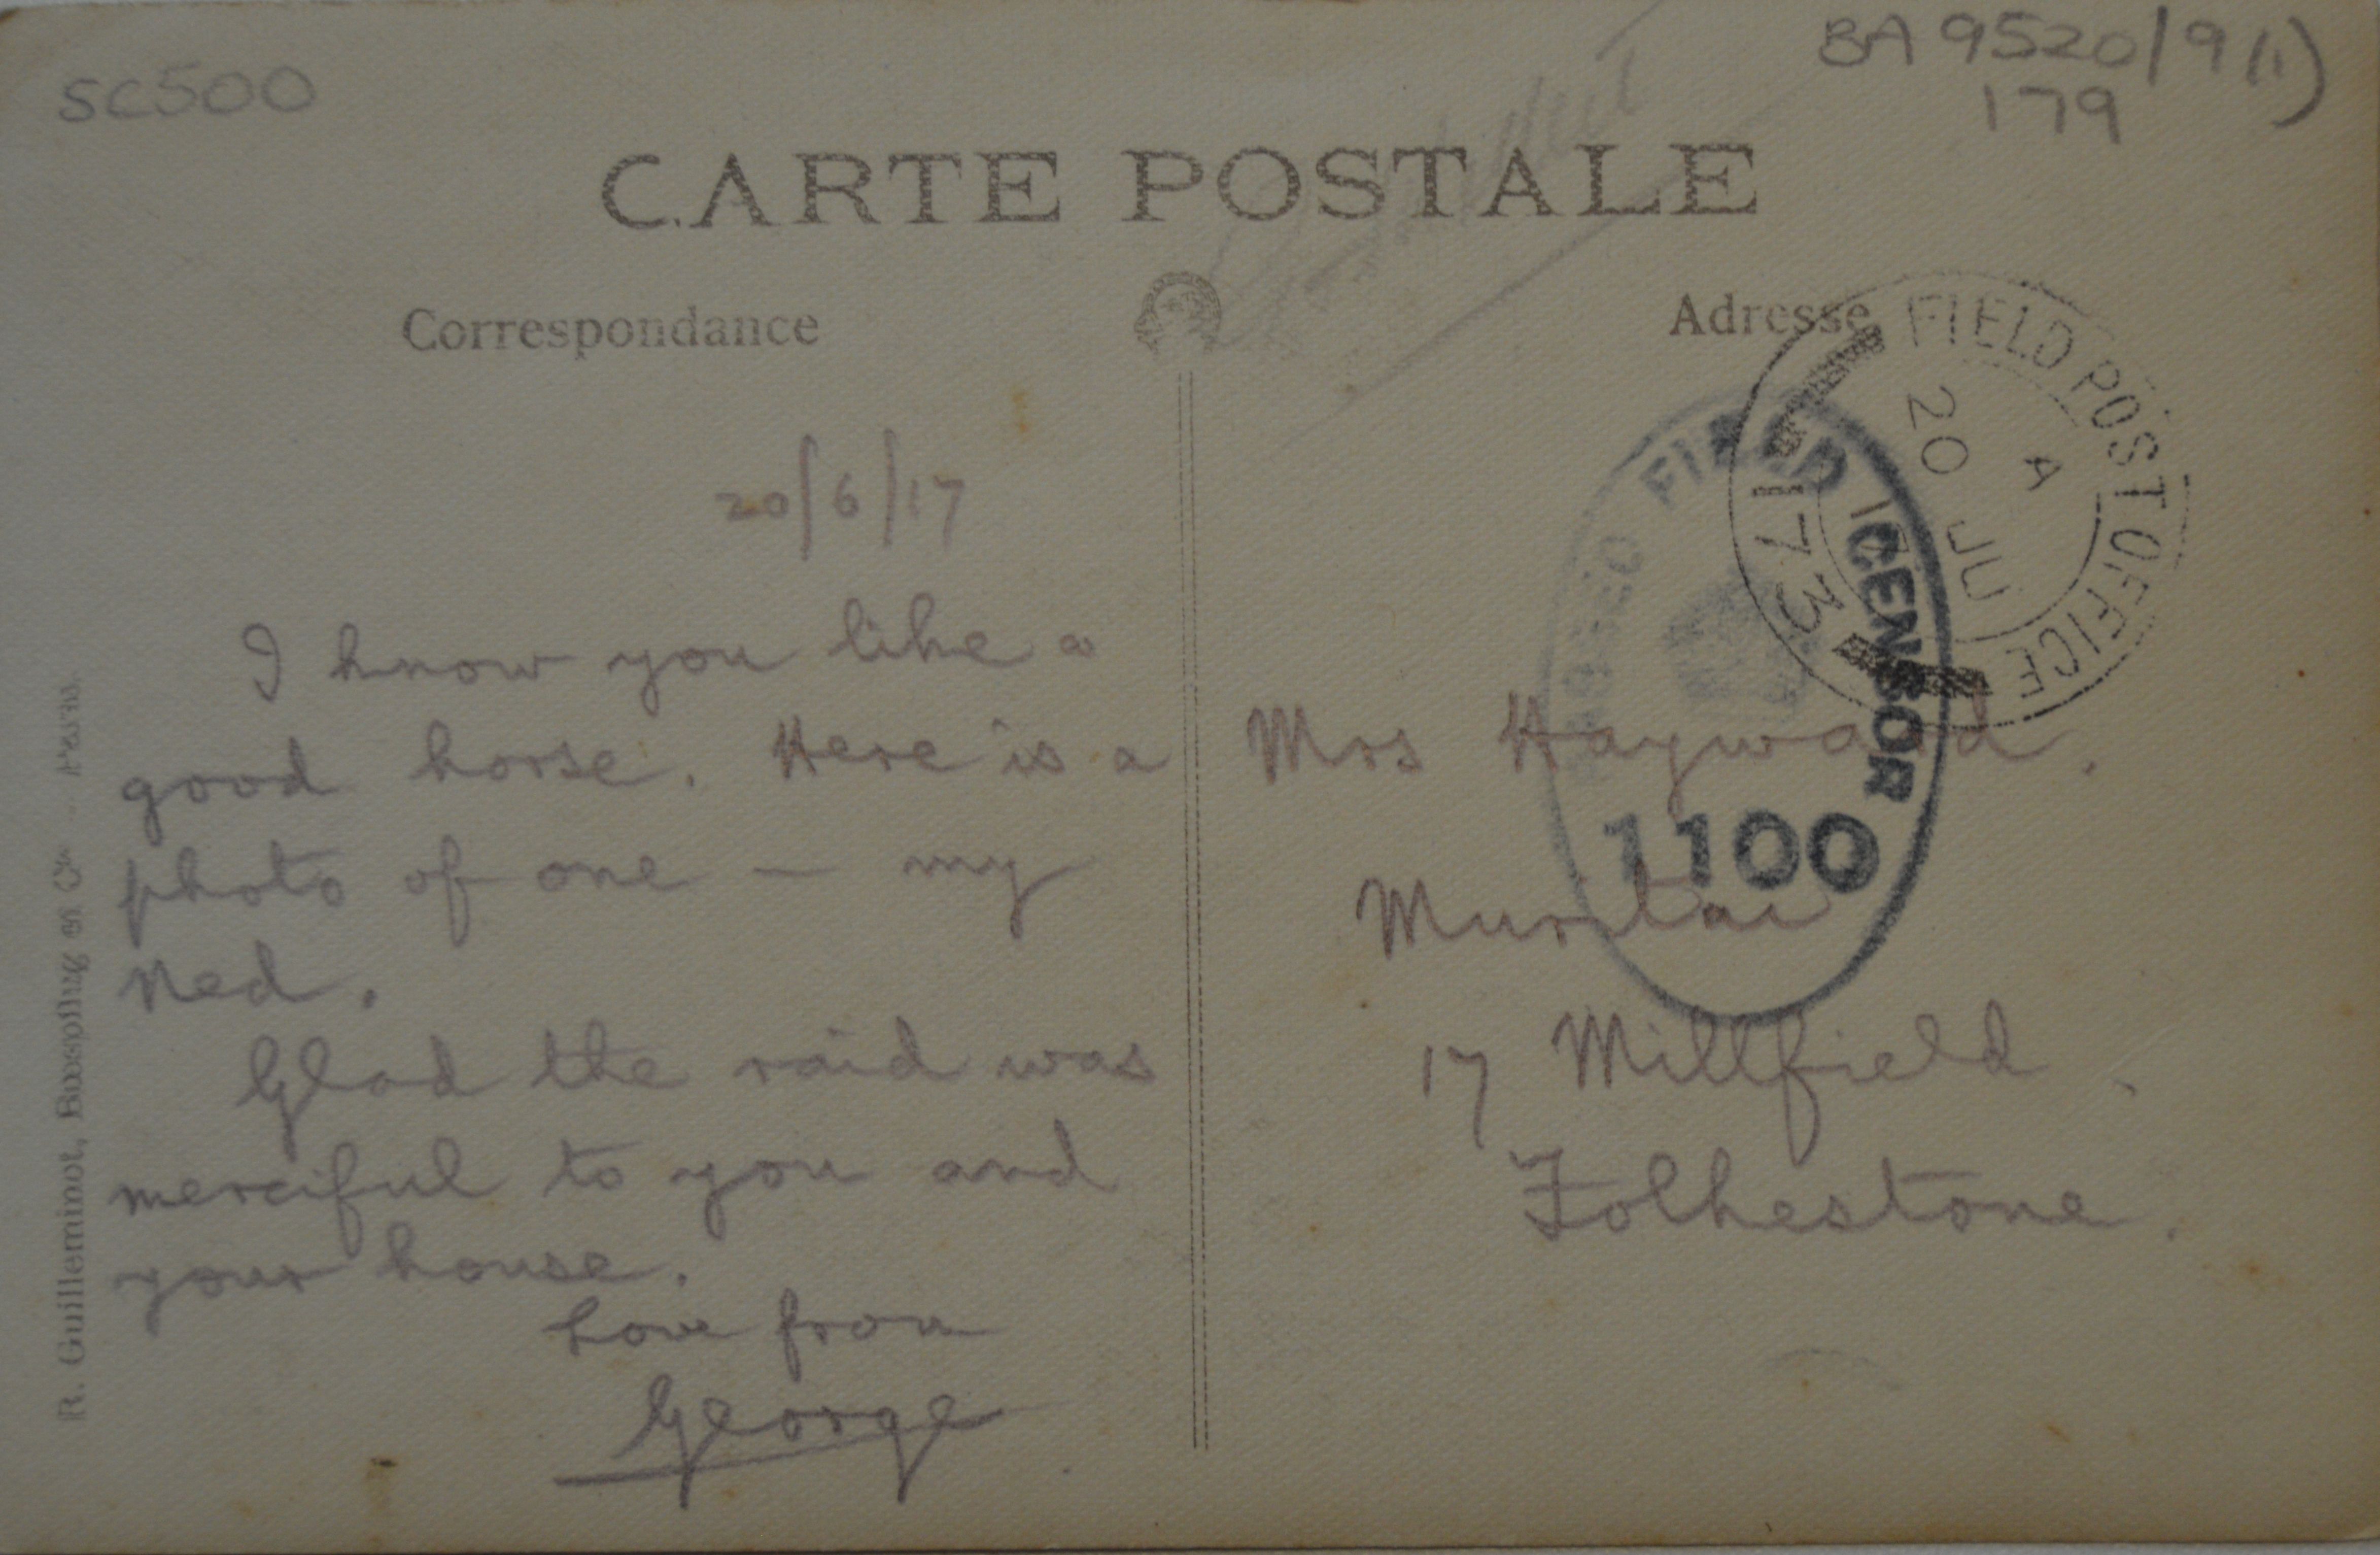 SC500
BA 9520/9(1)
179
CARTE POSTALE
Correspondance
Adresse
FIELD POST OFFICE
A
20 JU
173
FIELD CENSOR
1100
20/6/17
I know you like a
good horse. Here is a
photo of one — my
Ned.
Glad the raid was
merciful to you and
your house.
Love from
George
Mrs Hayward.
Muritai
17 Millfield
Folkestone.
R. Guilleminot, Bœspflug et Cie - Paris.